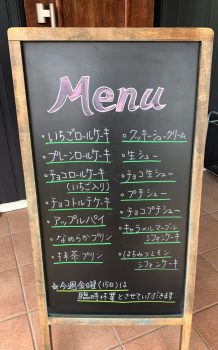 Menu
・いちごロールケーキ
・プレーンロールケーキ
・チョコロールケーキ
(いちご入り)
・チョコトルテケーキ
・アップルパイ
・なめらかプリン
・抹茶プリン
・クッキーシュークリーム
・生シュー
・チョコ生シュー
・プチシュー
・チョコプチシュー
・キャラメルマーブル
シフォンケーキ
・はちみつレモン
シフォンケーキ
☆今週金曜(15日)は
臨時休業とさせていただきます